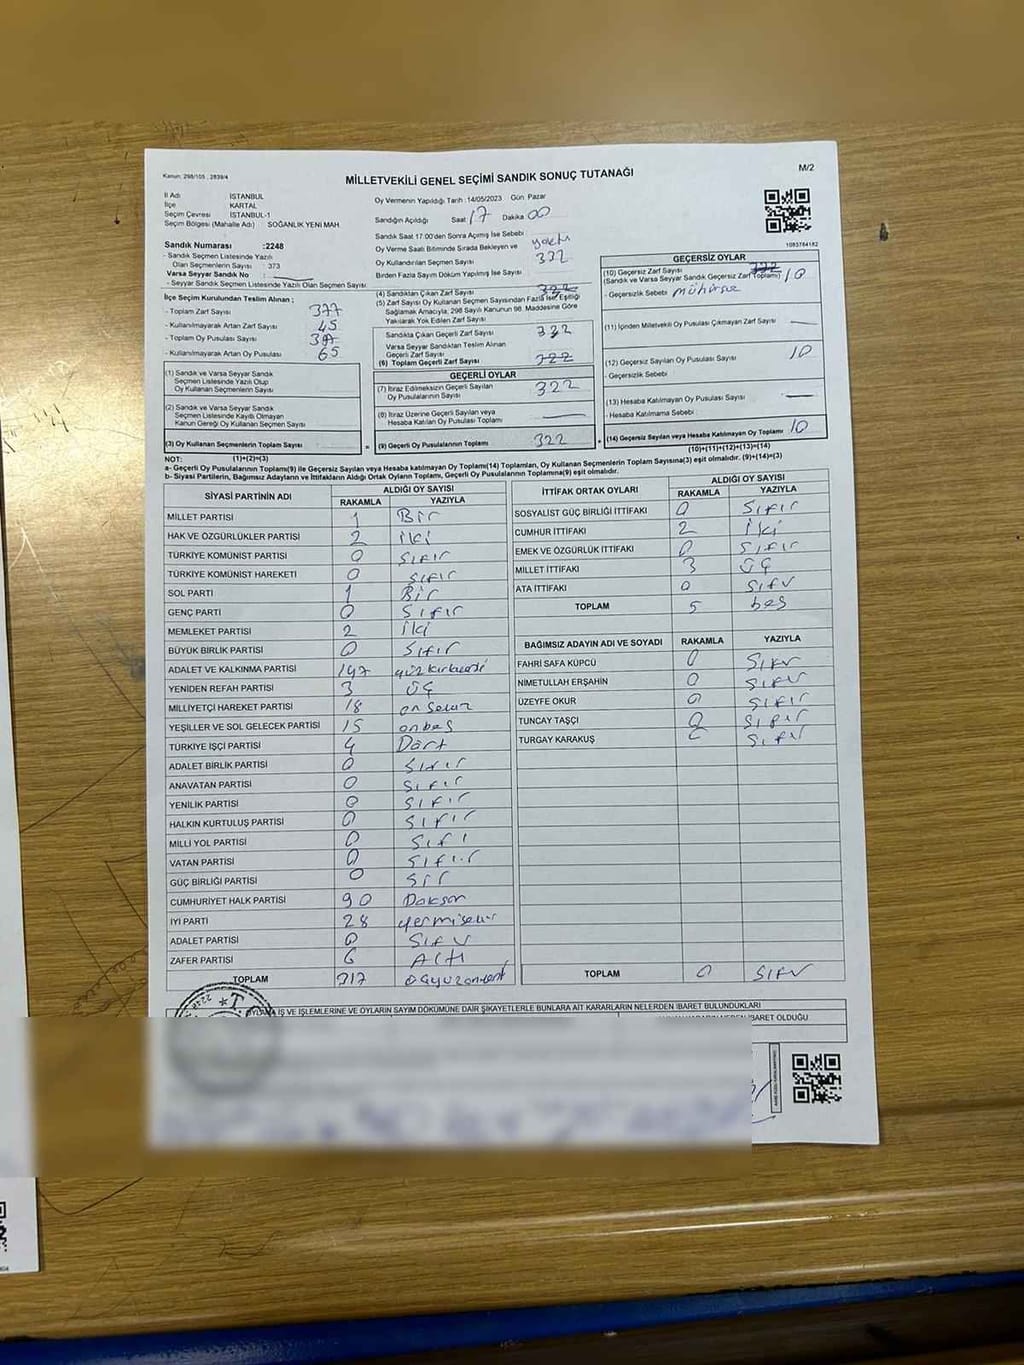 Kanun: 298/105 , 2839/4
MİLLETVEKİLİ GENEL SEÇİMİ SANDIK SONUÇ TUTANAĞI
M/2
İl Adı İSTANBUL
İlçe KARTAL
Seçim Çevresi İSTANBUL-1
Seçim Bölgesi (Mahalle Adı) SOĞANLIK YENİ MAH
Sandık Numarası :2248
- Sandık Seçmen Listesinde Yazılı
Olan Seçmenlerin Sayısı : 373
Varsa Seyyar Sandık No :
- Seyyar Seçmen Listesinde Yazılı Olan Seçmen Sayısı
İlçe Seçim Kurulundan Teslim Alınan ;
- Toplam Zarf Sayısı : 377
- Kullanılmayarak Artan Zarf Sayısı : 45
- Toplam Oy Pusulası :
- Kullanılmayarak Artan Oy Pusulası : 65
(1) Sandık ve Varsa Seyyar Sandık
Seçmen Listesinde Yazılı Olup
Oy Kullanan Seçmenlerin Sayısı
(2) Sandık ve Varsa Seyyar Sandık
Seçmen Listesinde Kayıtlı Olmayan
Kanun Gereği Oy Kullanan Seçmen Sayısı
(3) Oy Kullanan Seçmenlerin Toplam Sayısı
(1)+(2)=(3)
Oy Vermenin Yapıldığı Tarih :14/05/2023 Gün Pazar
Sandığın Açıldığı Saat 17 Dakika 00
Sandık Saat 17:00'den Sonra Açılmış İse Sebebi
Oy Verme Saati Bitiminde Sırada Bekleyen ve
Oy Kullandırılan Seçmen Sayısı 332
Birden Fazla Sayım Döküm Yapılmış İse Sayısı
(4) Sandıktan Çıkan Zarf Sayısı 332
(5) Zarf Sayısı Oy Kullanan Seçmen Sayısından Fazla İse, Eşitliği
Sağlamak Amacıyla, 298 Sayılı Kanunun 98. Maddesine Göre
Yakılarak Yok Edilen Zarf Sayısı
Sandıkta Çıkan Geçerli Zarf Sayısı 322
Varsa Seyyar Sandıktan Teslim Alınan
Geçerli Zarf Sayısı
(6) Toplam Geçerli Zarf Sayısı 322
GEÇERLİ OYLAR
(7) İtiraz Edilmeksizin Geçerli Sayılan
Oy Pusulalarının Sayısı 322
(8) İtiraz Üzerine Geçerli Sayılan veya
Hesaba Katılan Oy Pusulaları Toplamı
(9) Geçerli Oy Pusulalarının Toplamı 322
1083764182
GEÇERSİZ OYLAR
(10) Geçersiz Zarf Sayısı
(Sandık ve Varsa Seyyar Sandık Geçersiz Zarf Toplamı) 10
- Geçersizlik Sebebi
(11) İçinden Milletvekili Oy Pusulası Çıkmayan Zarf Sayısı
(12) Geçersiz Sayılan Oy Pusulası Sayısı 10
- Geçersizlik Sebebi
(13) Hesaba Katılmayan Oy Pusulası Sayısı
- Hesaba Katılmama Sebebi
(14) Geçersiz Sayılan veya Hesaba Katılmayan Oy Toplamı 10
(10)+(11)+(12)+(13)=(14)
NOT:
a- Geçerli Oy Pusulalarının Toplamı(9) ile Geçersiz Sayılan veya Hesaba katılmayan Oy Toplamı(14) Toplamları, Oy Kullanan Seçmenlerin Toplam Sayısına(3) eşit olmalıdır. (9)+(14)=(3)
b- Siyasi Partilerin, Bağımsız Adayların ve İttifakların Aldığı Ortak Oyların Toplamı, Geçerli Oy Pusulalarının Toplamına(9) eşit olmalıdır.
SİYASİ PARTİNİN ADI ALDIĞI OY SAYISI
RAKAMLA YAZIYLA
MİLLET PARTİSİ 1 Bir
HAK VE ÖZGÜRLÜKLER PARTİSİ 2 İki
TÜRKİYE KOMÜNİST PARTİSİ 0 Sıfır
TÜRKİYE KOMÜNİST HAREKETİ 0 Sıfır
SOL PARTİ 1 Bir
GENÇ PARTİ 0 Sıfır
MEMLEKET PARTİSİ 2 İki
BÜYÜK BİRLİK PARTİSİ 0 Sıfır
ADALET VE KALKINMA PARTİSİ 147 yüzkırkyedi
YENİDEN REFAH PARTİSİ 3 üç
MİLLİYETÇİ HAREKET PARTİSİ 18 onsekiz
YEŞİLLER VE SOL GELECEK PARTİSİ 15 onbeş
TÜRKİYE İŞÇİ PARTİSİ 4 Dört
ADALET BİRLİK PARTİSİ 0 Sıfır
ANAVATAN PARTİSİ 0 Sıfır
YENİLİK PARTİSİ 0 Sıfır
HALKIN KURTULUŞ PARTİSİ 0 Sıfır
MİLLİ YOL PARTİSİ 0 Sıfı
VATAN PARTİSİ 0 Sıfır
GÜÇ BİRLİĞİ PARTİSİ 0
CUMHURİYET HALK PARTİSİ 90 Doksan
İYİ PARTİ 28 yirmisekiz
ADALET PARTİSİ 0 Sıfır
ZAFER PARTİSİ 6 Altı
TOPLAM 317 üçyüzonyedi
İTTİFAK ORTAK OYLARI ALDIĞI OY SAYISI
RAKAMLA YAZIYLA
SOSYALİST GÜÇ BİRLİĞİ İTTİFAKI 0 Sıfır
CUMHUR İTTİFAKI 2 İki
EMEK VE ÖZGÜRLÜK İTTİFAKI 0 Sıfır
MİLLET İTTİFAKI 3 üç
ATA İTTİFAKI 0 Sıfır
TOPLAM 5 beş
BAĞIMSIZ ADAYIN ADI VE SOYADI RAKAMLA YAZIYLA
FAHRİ SAFA KÜPCÜ 0 Sıfır
NİMETULLAH ERŞAHİN 0 Sıfır
ÜZEYFE OKUR 0 Sıfır
TUNCAY TAŞÇI 0 Sıfır
TURGAY KARAKUŞ 0 Sıfır
TOPLAM 0 Sıfır
OYLAMA İŞ VE İŞLEMLERİNE VE OYLARIN SAYIM DÖKÜMÜNE DAİR ŞİKAYETLERLE BUNLARA AİT KARARLARIN NELERDEN İBARET BULUNDUKLARI